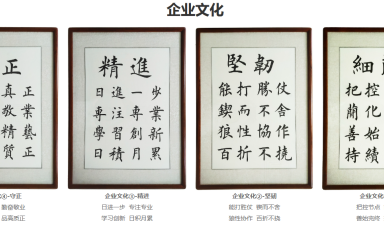 企业文化
正
真 正
敬 業
精 藝
質 正
精進
日進一步
專注專業
學習創新
日積月累
堅韌
能打勝仗
鍥而不舍
狼性協作
百折不撓
細
把控
善始
持續
守正
勤奋敬业
品高质正
企业文化 精進
日进一步 专注专业
学习创新 日积月累
企业文化 坚韧
能打胜仗 锲而不舍
狼性协作 百折不挠
企业文化
把控节点
善始